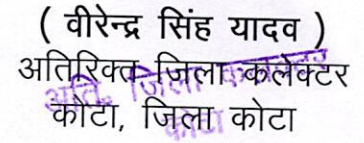 ( वीरेन्द्र सिंह यादव )
अतिरिक्त जिला कलेक्टर
कोटा, जिला कोटा
अति. जिला कलक्टर
कोटा